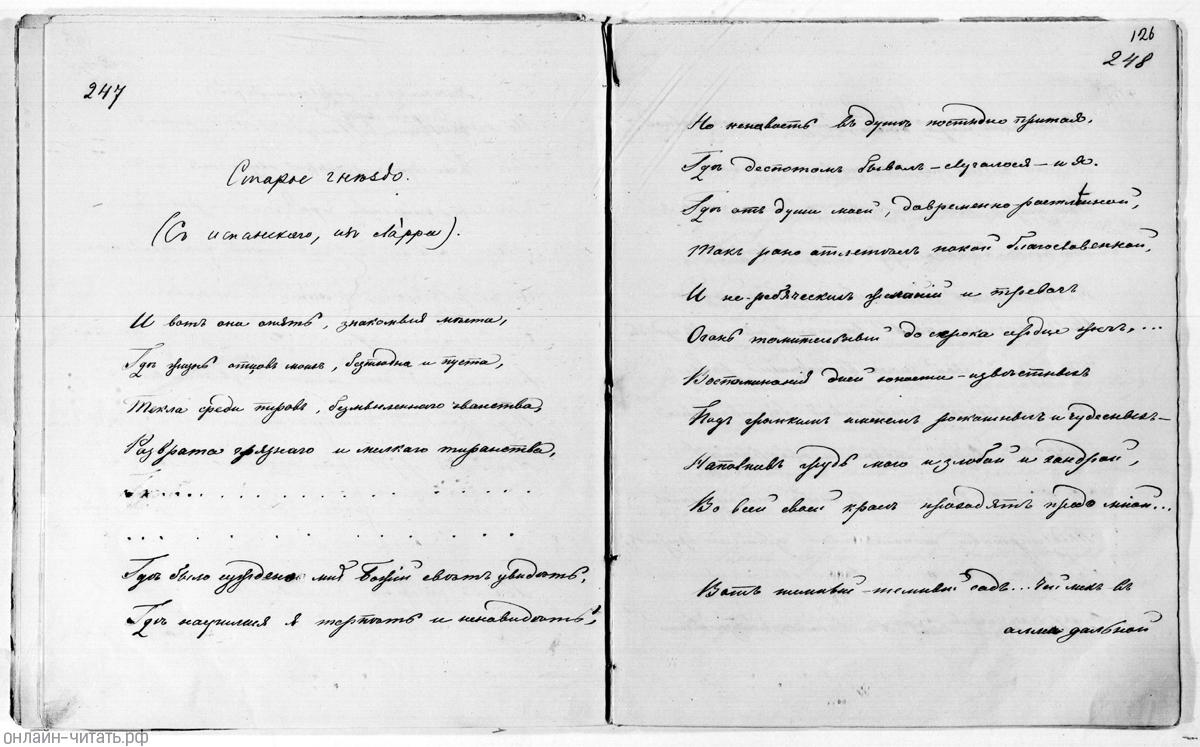 247
Старое гнѣздо.
(Съ испанскаго, изъ Ларра).
И вотъ они опять, знакомыя мѣста,
Гдѣ жизнь отцовъ моихъ, безплодна и пуста,
Текла среди пировъ, безмысленнаго чванства,
Разврата грязнаго и мелкаго тиранства,
. . . . . . . . . . . . . .
. . . . . . . . . . . . . .
Гдѣ было суждено мнѣ Божій свѣтъ увидѣть,
Гдѣ научился я терпѣть и ненавидѣть,
126
248
Но ненависть въ душѣ постыдно притая,
Гдѣ деспотомъ бывалъ – случалося – и я.
Гдѣ отъ души моей, довременно растлѣнной,
Такъ рано отлетѣлъ покой благословенной,
И не-ребяческихъ желаній и тревогъ
Огонь томительный до срока сердце жегъ....
Воспоминанія дней юности – извѣстныхъ
Подъ громкимъ именемъ роскошныхъ и чудесныхъ –
Наполнивъ грудь мою и злобой и хандрой,
Во всей своей красѣ проходятъ предо мной...
Вотъ темный-темный садъ... Чей ликъ въ
аллеѣ дальной
онлайн-читать.рф